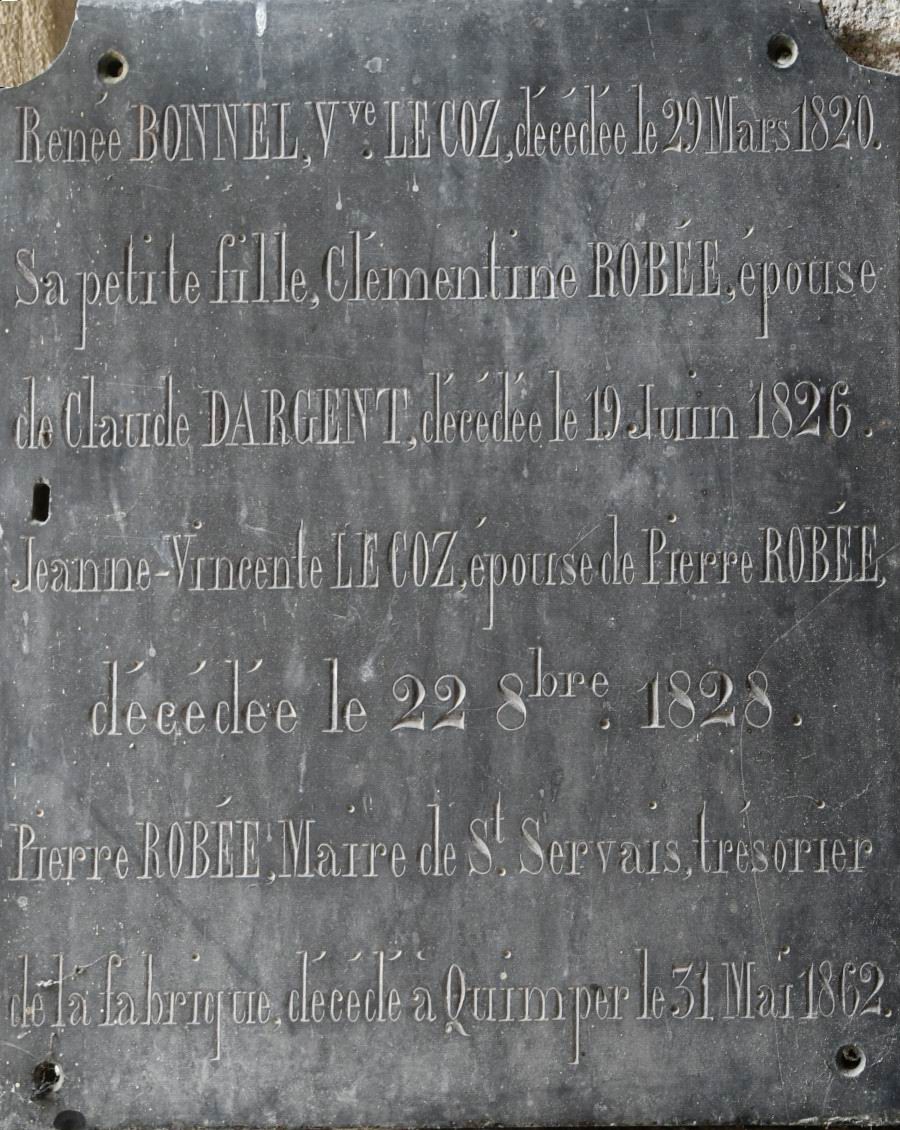 Renée BONNEL, Vve. LE COZ, décédée le 29 Mars 1820.
Sa petite fille, Clémentine ROBÉE, épouse
de Claude DARGENT, décédée le 19 Juin 1826.
Jeanne-Vincente LE COZ, épouse de Pierre ROBÉE,
décédée le 22 8bre. 1828.
Pierre ROBÉE, Maire de St. Servais, trésorier
de la fabrique, décédé à Quimper le 31 Mai 1862.